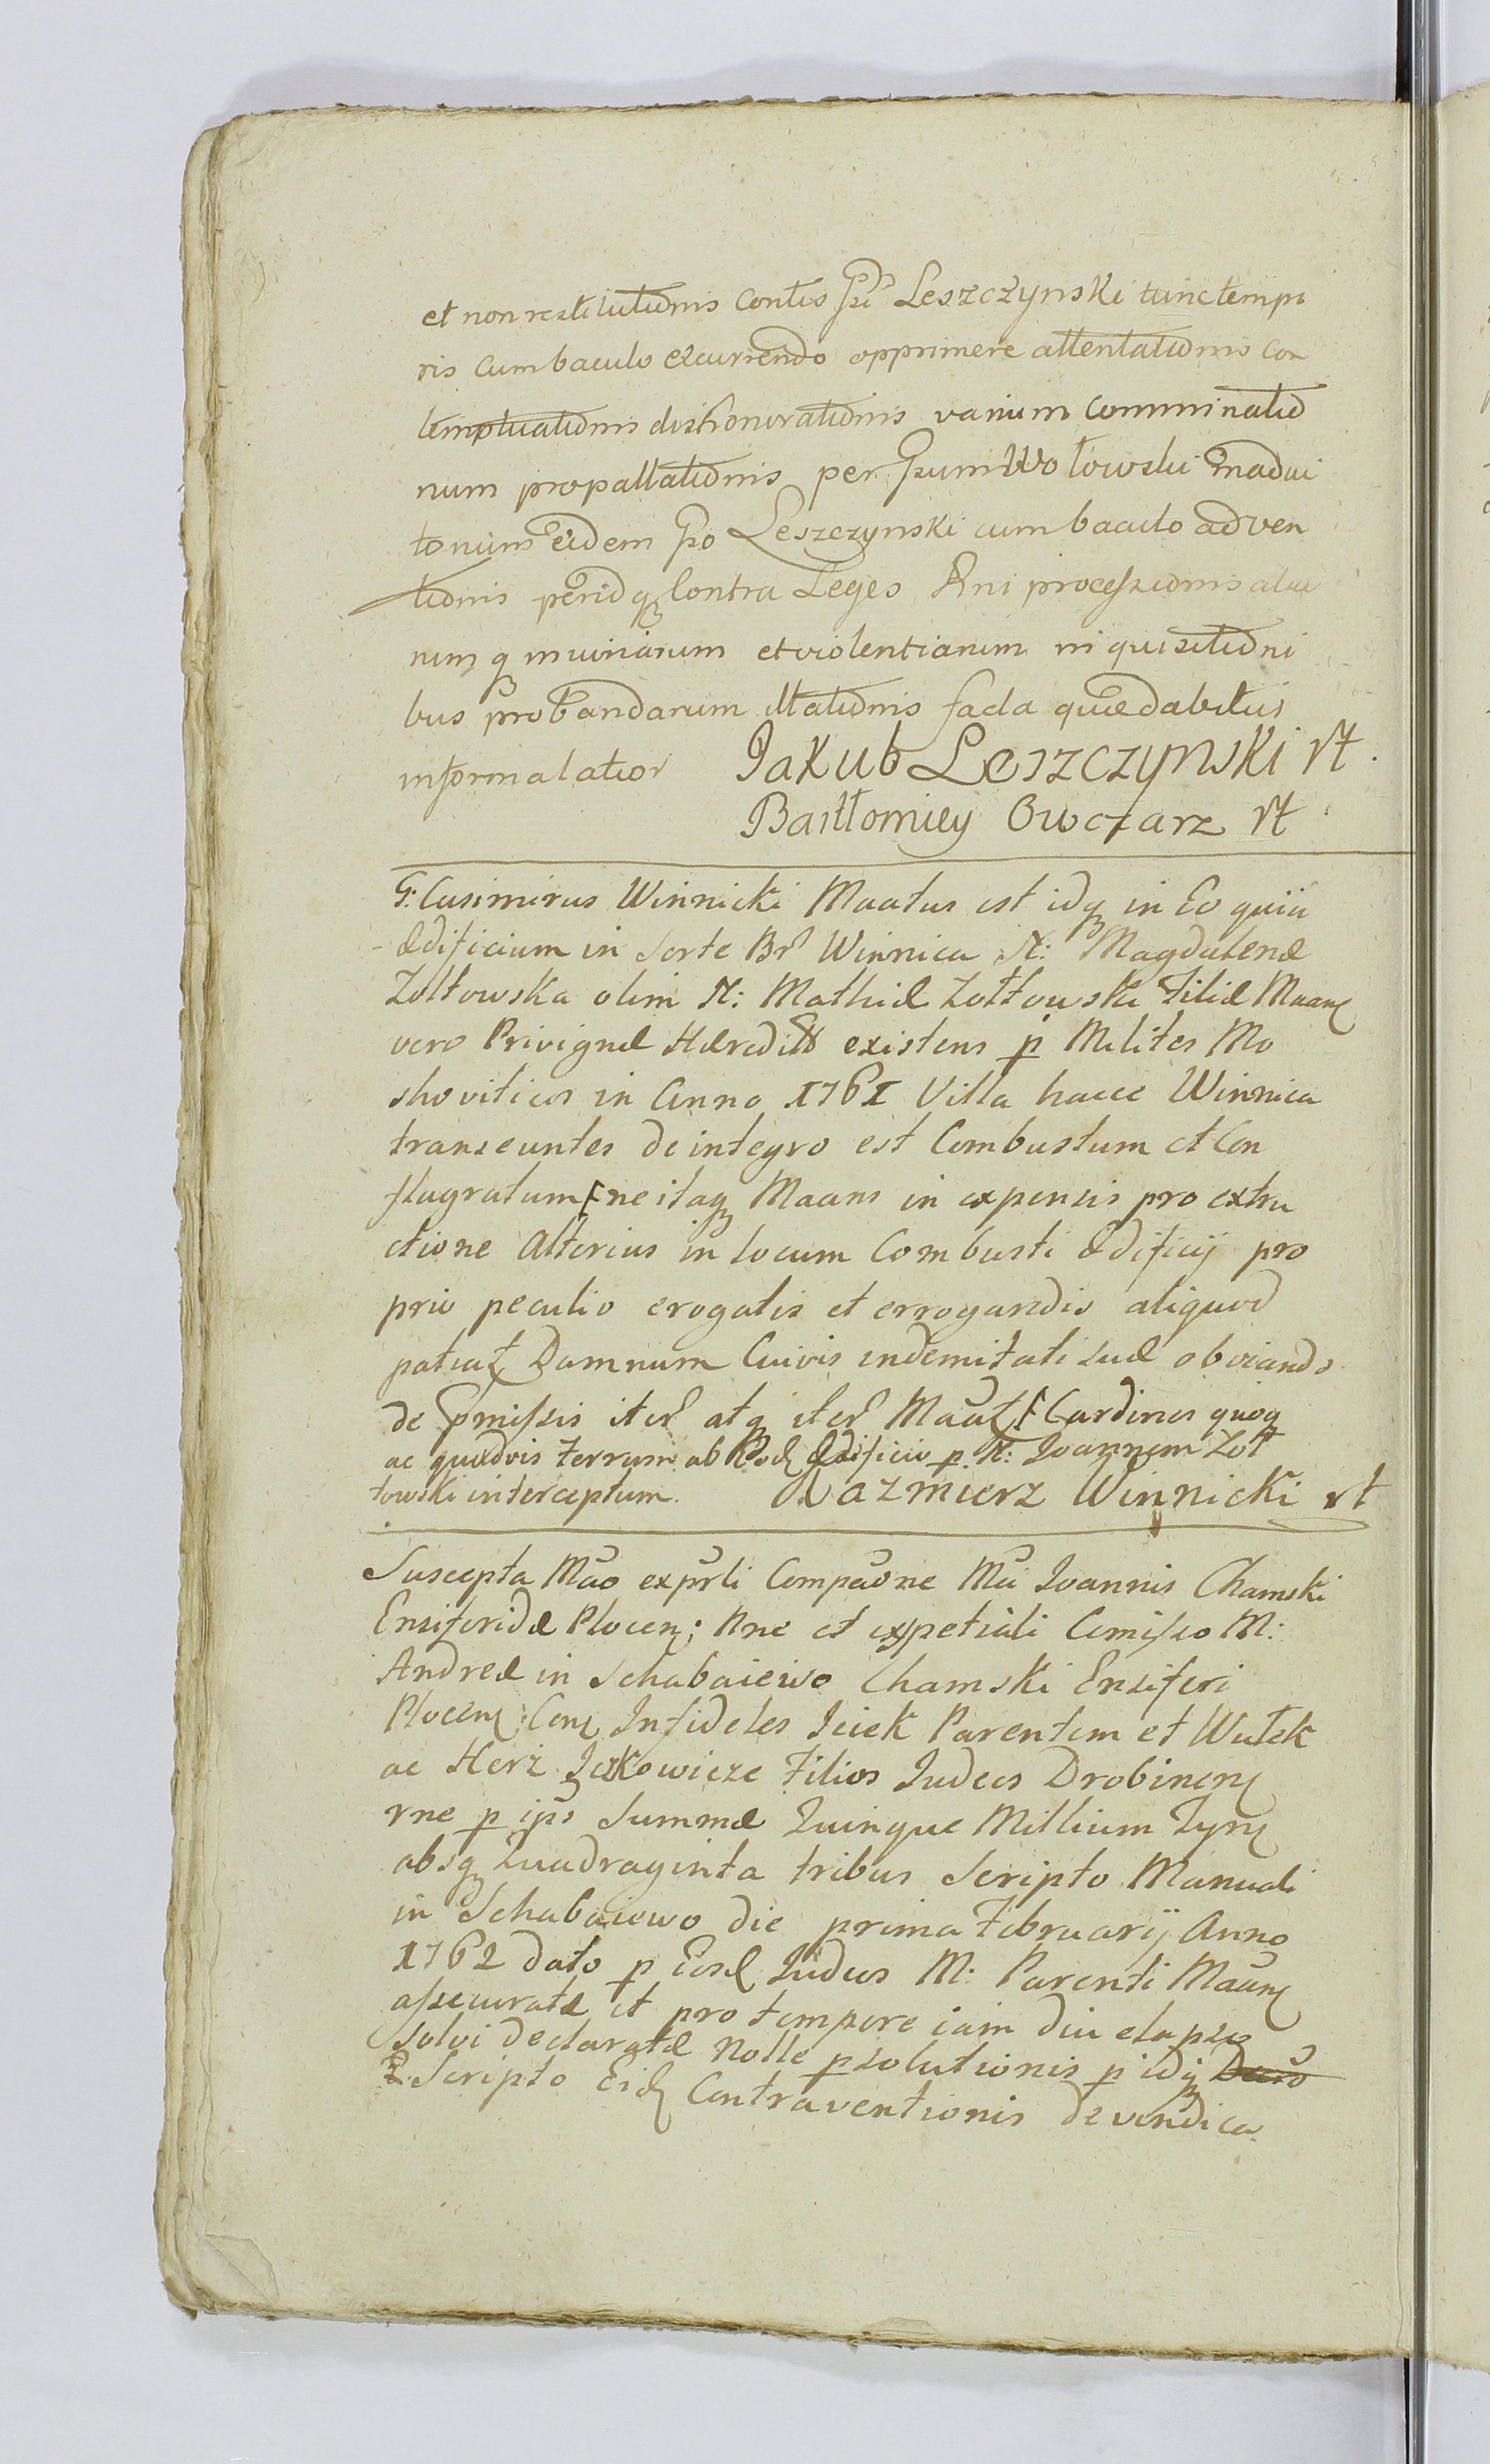 et non restitutionis contis Psi Leszczynski tunc tempo
ris cum baculo excurrendo opprimere attentationis con
temptuationis dishonorationis varium comminatio
num propallationis per Psum Wołowski
tonum eidem Pso Leszczynski cum baculo adven
tionis contra Leges Rni processionis alia
rum q iniuriarum et violentiarum inquisitioni
bus probandarum illationis facta quae dabitur
informa latior Jakub Leszczynski rt
Bartłomiey Owczarz rt
G: Casimirus Winnicki Maatus est idq in Eo quia
Ædificium in Sorte Br Winnica N: Magdalenæ
Zołtowska olim N: Mathiæ Zołtowski Filiæ Maan
vero Privignæ Hæredit existens p Milites Mo
shoviticos in Anno 1761 Villa hacce Winnica
transeuntes de integro est Combustum et Con
flagratum ne itaq Maans in expensis pro extru
ctione Alterius in locum Combusti Ædificij pro
prio peculio erogatis et errogandis aliquod
patiat Damnum Cuivis indemitati suæ obviando
de pmissis iter atq iter Maat Cardines quoq
ac quædvis Ferrum ab Eod Ædificio p N: Joannem Zoł
towski interceptum. Kazmierz Winnicki rt
Suscepta Mao exprli Compaone Mci Joannis Chamski
Ensiferidæ Plocen; Rne et expetiali Comisso M:
Andreæ in Schabaiewo Chamski Ensiferi
Plocen: Con Infideles Iciek Parentem et Wulek
ac Herz Ickowicze Filios Judæos Drobinen
rne p ips Summæ Quinque Millium
absq Quadraginta tribus Scripto Manuali
in Schabaiewo die prima Februarij Anno
1762 dato p Eosd Judæos M: Parenti Maan
assecuratæ et pro tempore iam diu elapso
solvi declaratæ nolle psolutionis p idq
Scripto Eid Contraventionis de vendica